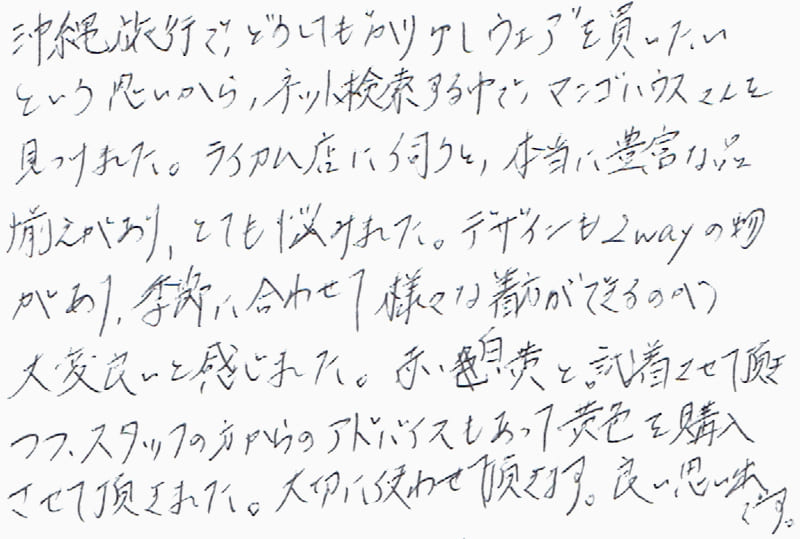 沖縄旅行で、どうしてもかりゆしウェアを買いたい
という思いから、ネット検索する中で、マンゴハウスさんを
見つけました。ライカム店に伺うと、本当に豊富な品
揃えがあり、とても悩みました。デザインも2wayの物
があり、季節に合わせて様々な着方ができるのが
大変良いと感じました。赤い白黄と試着させて頂き
つつ、スタッフの方からのアドバイスもあって黄色を購入
させて頂きました。大切に使わせて頂きます。良い思い出
です。